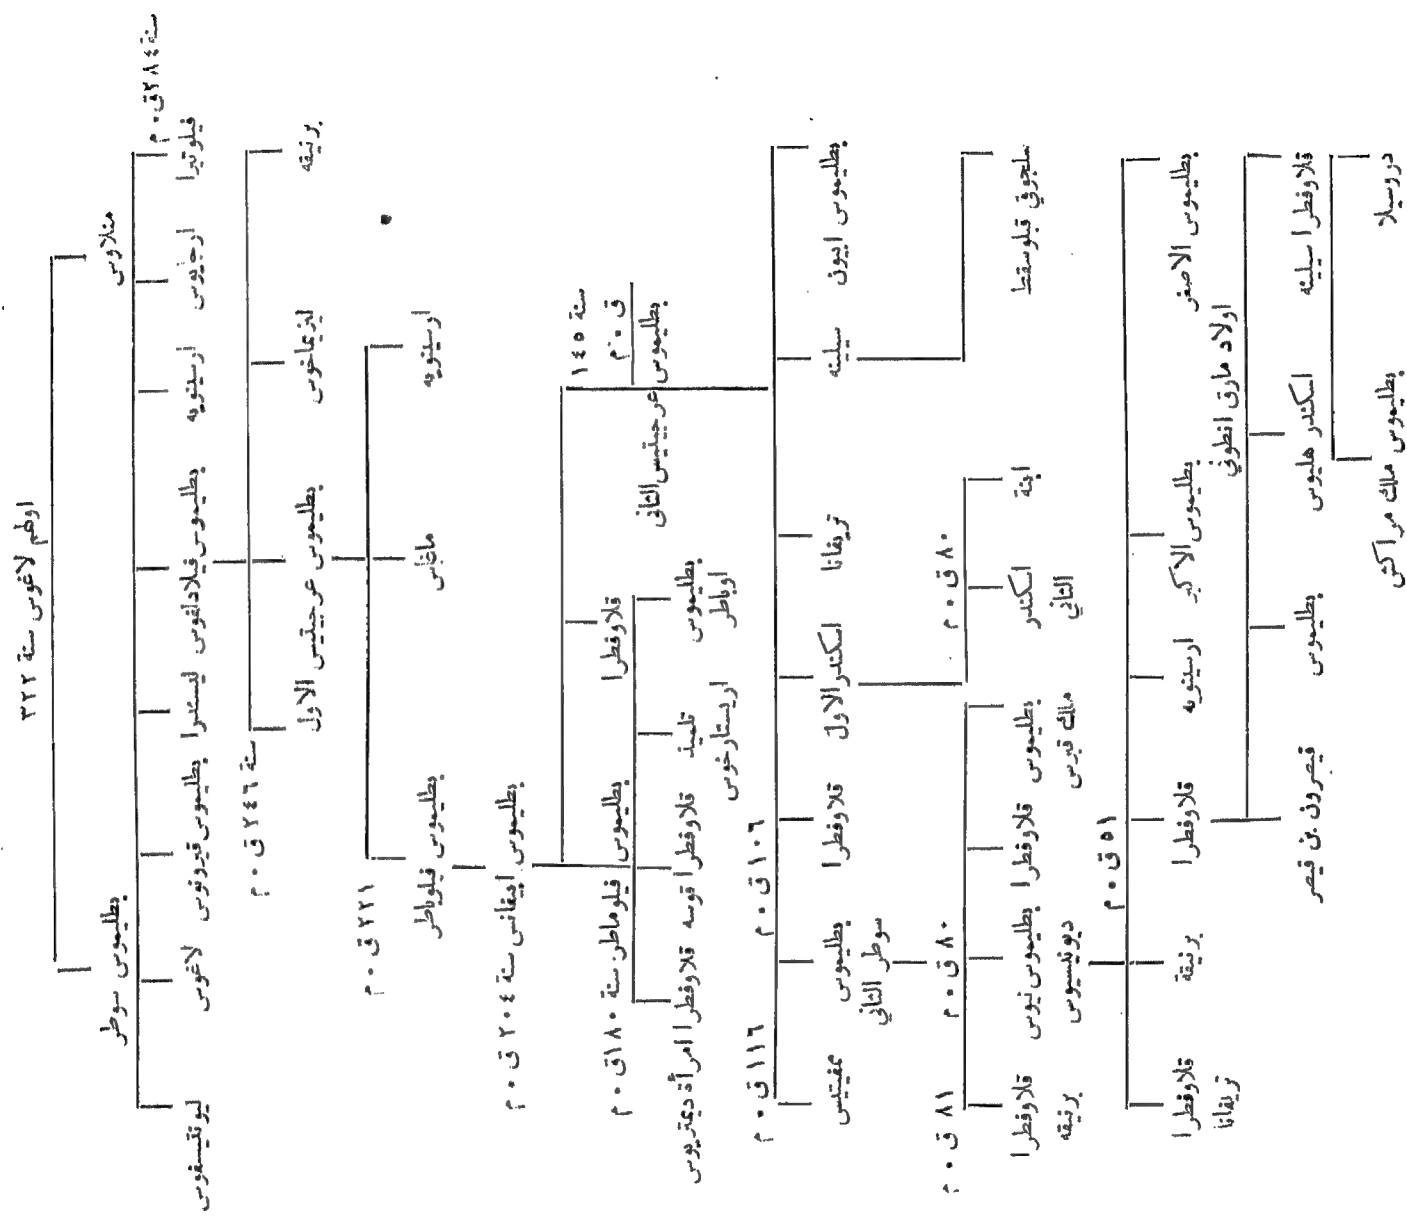 اولهم لاغوس سنة ٣٢٢
منلاوس
بطليموس سوطر
سنة ٢٨٤ ق ٠ م
فيلوتيرا
ارجايوس
ارسينويه
بطليموس فيلادلفوس
ليسندرا
بطليموس قيرونوس
لاغوس
ليونتيسقوس
سنة ٢٤٦ ق ٠ م
برنيقه
ليزيماخوس
بطليموس عرجيتيس الاول
٢٢١ ق ٠ م
ارسينويه
ماغاس
بطليموس فيلوباطر
بطليموس ابيفانس سنة ٢٠٤ ق ٠ م
سنة ١٤٥ ق ٠ م
بطليموس عرجيتيس الثانى
قلاوفطرا
بطليموس فيلوماطر سنة ١٨٠ ق ٠ م
بطليموس اوباطر
تلميذ ارستارخوس
قلاوفطرا قوسه
قلاوفطرا امرأة ديمتريوس
١١٦ ق ٠ م
١٠٦ ق ٠ م
بطليموس ابيون
سيلينه
تريفانا
اسكندر الاول
قلاوفطرا
بطليموس سوطر الثاني
ممفيتيس
سلجوقي قبلوسقط
٨٠ ق ٠ م
ابنة
اسكندر الثاني
٨١ ق ٠ م
٨٠ ق ٠ م
بطليموس ملك قبرس
قلاوفطرا
بطليموس نيوس ديونيسيوس
قلاوفطرا برنيقه
٥١ ق ٠ م
بطليموس الاصغر
بطليموس الاكبر
ارسينويه
قلاوفطرا
برنيقة
قلاوفطرا تريفانا
اولاد مارق انطوني
قلاوفطرا سيلينه
اسكندر هليوس
بطليموس
قيصرون بن قيصر
دروسيلا
بطليموس ملك مراكش